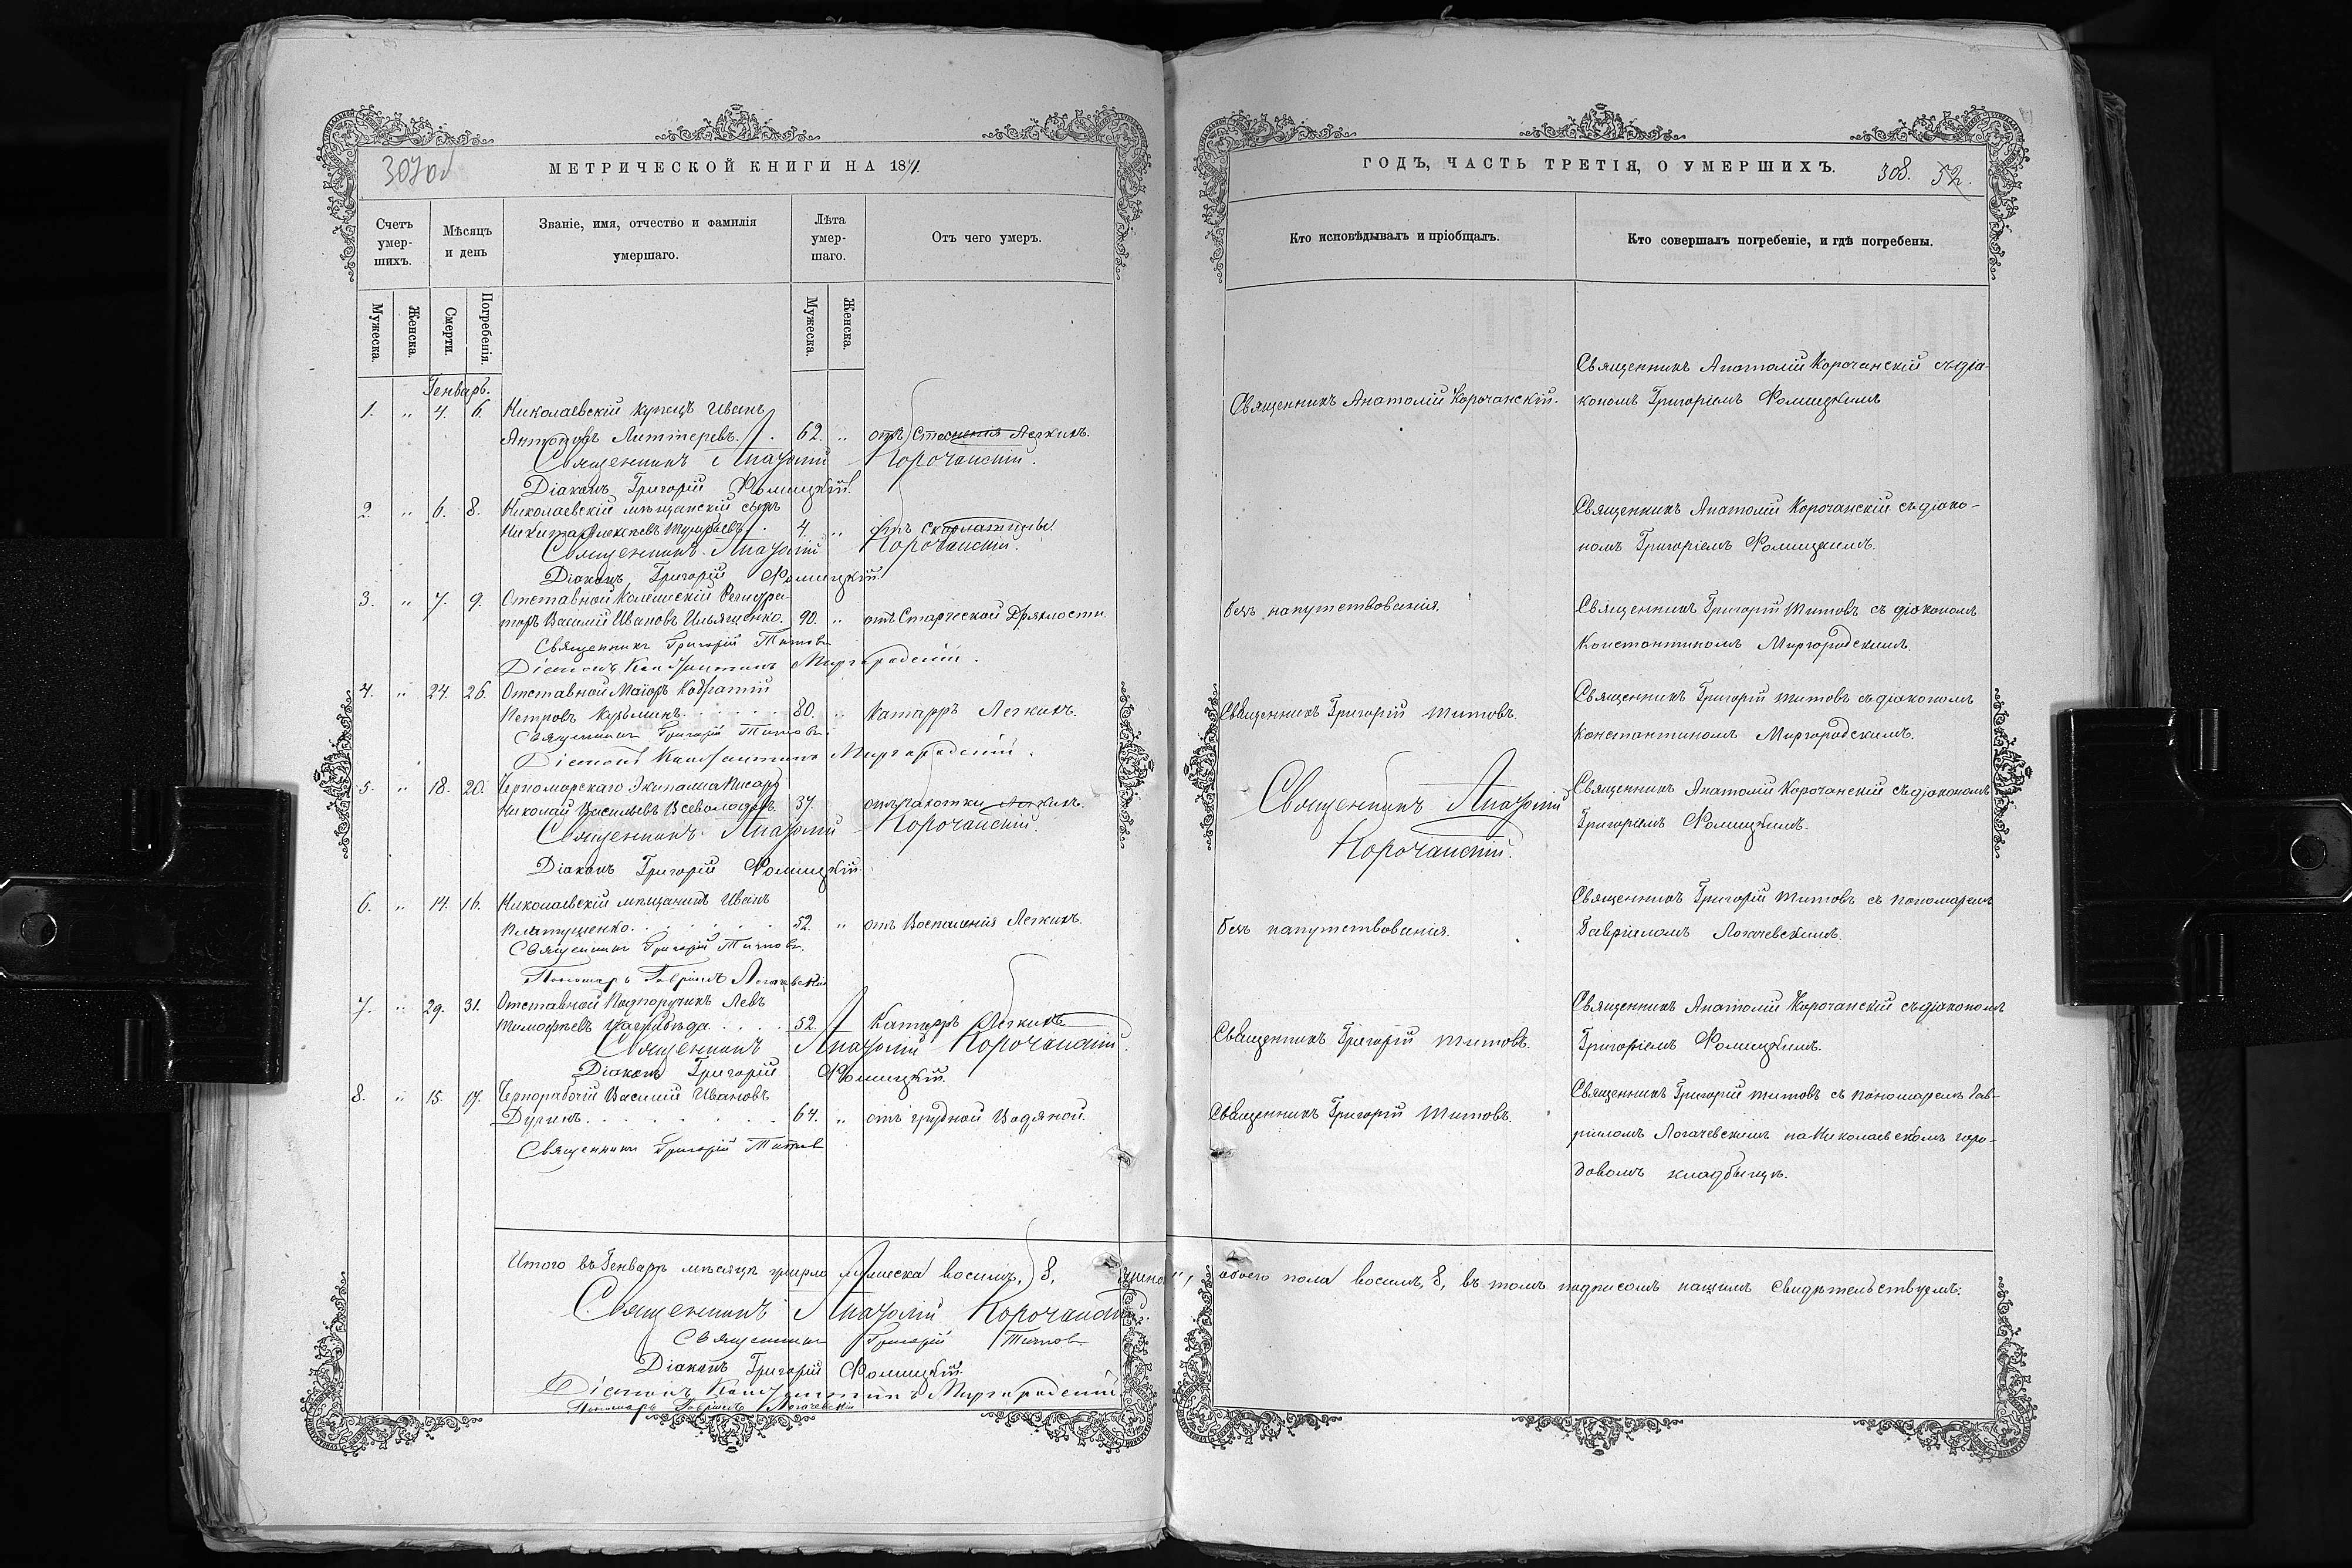 307об
МЕТРИЧЕСКОЙ КНИГИ НА 1871.
Счетъ умер-шихъ.
Мѣсяцъ и день
Званіе, имя, отчество и фамилія умершаго.
Лѣта умер-шаго.
Отъ чего умеръ.
Мужеска.
Женска.
Смерти.
Погребенія.
Мужеска.
Женска.
Генварь.
1. " 4. 6. Николаевскій купецъ Иванъ
Антоновъ 62. " отъ Стесненія Легкихъ.
Священникъ Анатолій Корочанскій.
Діаконъ Григорій Фомицкій.
2. " 6. 8. Николаевскій мѣщанскій сынъ
Никита Алексѣевъ 4. " отъ Скарлатины.
Священникъ Анатолій Корочанскій.
Діаконъ Григорій Фомицкій.
3. " 7. 9. Отставной Колежскій Регистра-
торъ Василій Ивановъ Ильяшенко. 90. " отъ Старческой Дряхлости.
Священникъ Григорій Титовъ
Діаконъ Константинъ Миргородскій.
4. " 24. 26. Отставной Маіоръ Кодратій
Петровъ Кузьминъ. 80. " Катарръ Легкихъ.
Священникъ Григорій Титовъ.
Діаконъ Константинъ Миргородскій.
5. " 18. 20. Черноморскаго Экипажа Писарь
Николай Васильевъ Всеволодовъ. 37. отъ чахотки Легкихъ.
Священникъ Анатолій Корочанскій.
Діаконъ Григорій Фомицкій.
6. " 14. 16. Николаевскій мѣщанинъ Иванъ
52. " отъ Воспаленія Легкихъ.
Священникъ Григорій Титовъ.
Пономарь Гавріилъ Логачевскій
7. " 29. 31. Отставной Подпоручикъ Левъ
Тимофѣевъ 52. Катарръ Легкихъ
Священникъ Анатолій Корочанскій.
Діаконъ Григорій Фомицкій.
8. " 15. 17. Чернорабочій Василій Ивановъ
Дугинъ. 64. " отъ грудной Водяной.
Священникъ Григорій Титовъ
Итого въ Генварѣ мѣсяцѣ умерло мужеска восимъ, 8,
Священникъ Анатолій Корочанскій.
Священникъ Григорій Титовъ.
Діаконъ Григорій Фомицкій.
Діаконъ Константинъ Миргородскій.
Пономарь Гавріилъ Логачевскій
ГОДЪ, ЧАСТЬ ТРЕТІЯ, О УМЕРШИХЪ.
308. 52.
Кто исповѣдывалъ и пріобщалъ.
Кто совершалъ погребеніе, и гдѣ погребены.
Священникъ Анатолій Корочанскій съ діа-
Священникъ Анатолій Корочанскій. кономъ Григоріемъ Фомицкимъ
Священникъ Анатолій Корочанскій съ діако-
номъ Григоріемъ Фомицкимъ.
безъ напутствованія. Священникъ Григорій Титовъ съ діакономъ
Константиномъ Миргородскимъ.
Священникъ Григорій Титовъ съ діакономъ
Священникъ Григорій Титовъ. Константиномъ Миргородскимъ.
Священникъ Анатолій Священникъ Анатолій Корочанскій съ діакономъ
Корочанскій. Григоріемъ Фомицкимъ.
Священникъ Григорій Титовъ съ пономаремъ
безъ напутствованія. Гавріиломъ Логачевскимъ.
Священникъ Анатолій Корочанскій съ діакономъ
Священникъ Григорій Титовъ. Григоріемъ Фомицкимъ.
Священникъ Григорій Титовъ съ пономаремъ Гав-
Священникъ Григорій Титовъ. ріиломъ Логачевскимъ на Николаевскомъ горо-
довомъ кладбищѣ.
обоего пола восимъ, 8, въ томъ подписомъ нашимъ свидѣтельствуемъ: